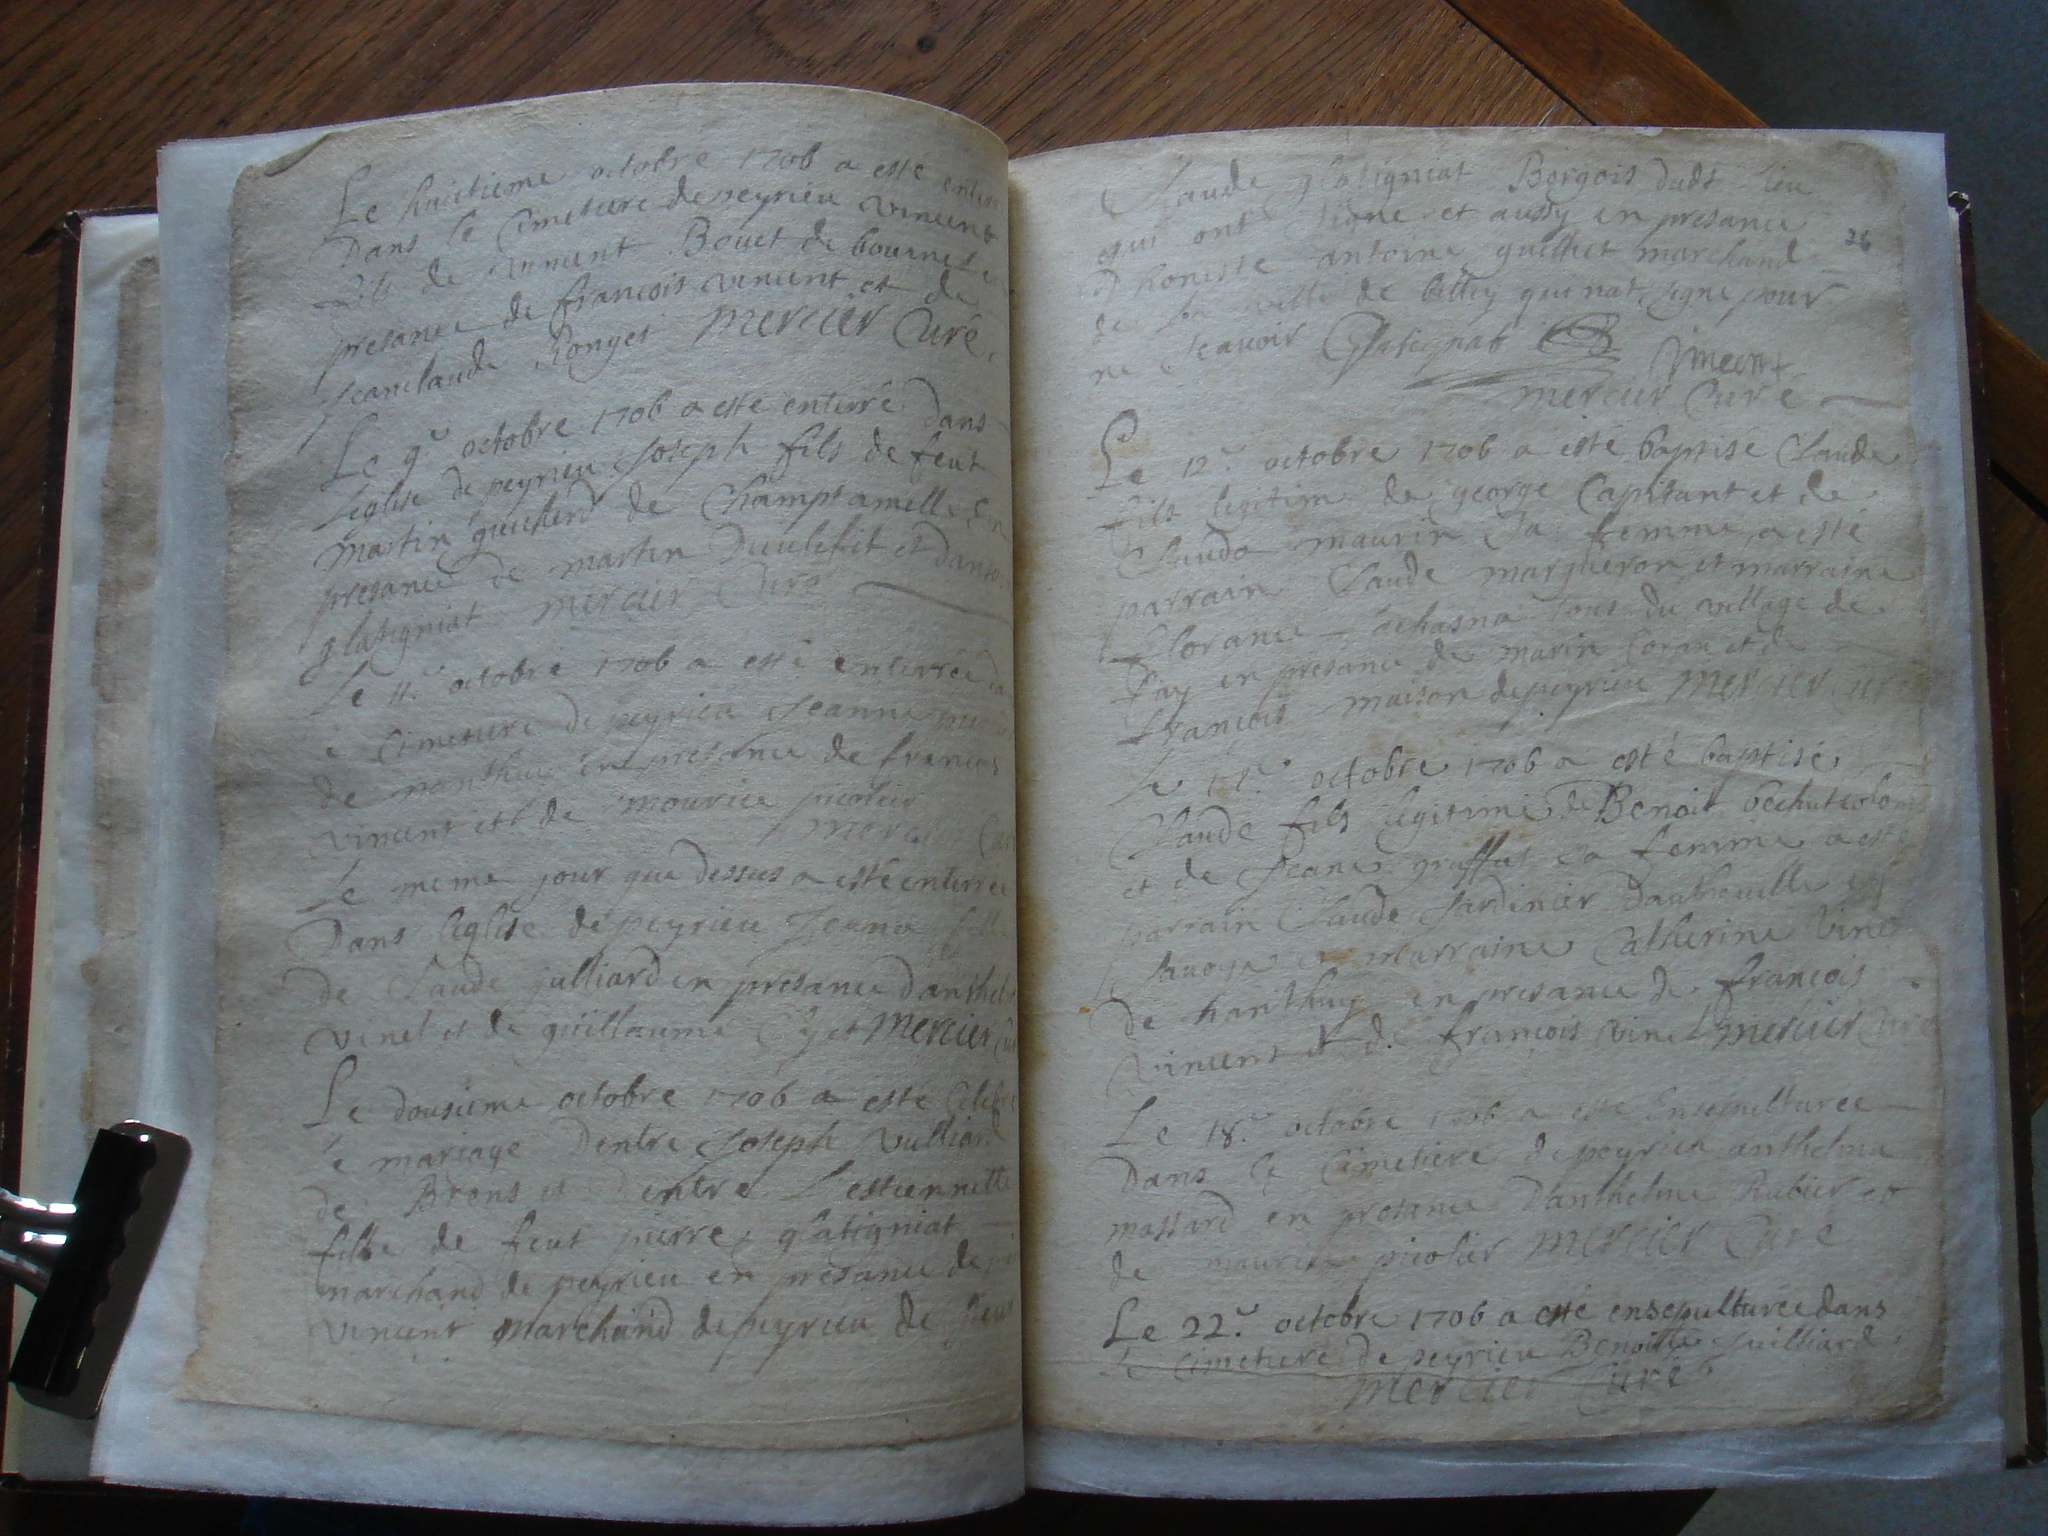 Le huictieme octobre 1706 a esté enterré
Dans le Cimetiere de peyrieu vincent
fils de vincent Bouet de
presance de francois vincent et de
Jeanclaude Ronget mercier Curé
Le 9e octobre 1706 a esté enterré Dans
Leglise de peyrieu Joseph fils de feut
martin guicherd de Champtamelle En
presance de martin et
glatigniat mercier Curé
Le 11e octobre 1706 a esté enterrée
Cimetiere de peyrieu Jeanne
de nanthuy en presance de francois
vincent et de mourice picolier
mercier Curé
Le meme jour que dessus a esté enterrée
Dans leglise de peyrieu Jeane fille
de Claude julliard en presance danthelme
vinet et de guillaume mercier Curé
Le dousieme octobre 1706 a esté Celebré
le mariage Dentre Joseph vulliard
de Brens et Dentre Lestiennette
fille de feut pierre glatigniat
marchand de peyrieu en presance de
vincent marchand de peyrieu de
Claude glatigniat Borgois dudt lieu
26
qui ont signe et aussy en presance
D honeste antoine guillict marchand
de la ville de belley qui nat signe pour
ne scavoir Glatigniat Vincent
mercier Curé
Le 12e octobre 1706 a esté baptisé Claude
fils legitime de george Capitant et de
Clauda maurin sa femme a esté
parrain Claude margueron et marraine
florance tous du village de
fay en presance de marin et de
francois maison de peyrieu mercier curé
Le octobre 1706 a esté baptisé
Claude fils legitime de Benoit bechut
et de Jeane sa femme a esté
parrain Claude Jardinier
et marraine Catherine vinet
de nanthuy en presance de francois
vincent et de francois vinet mercier Curé
Le 18e octobre 1706 a esté Ensepulturee
Dans le Cimetiere de peyrieu anthelma
massard en presance Danthelme Rubier et
de maurice picolier mercier Curé
Le 22e octobre 1706 a esté ensepulturée dans
le cimetiere de peyrieu Benoitte Juilliard
mercier Curé